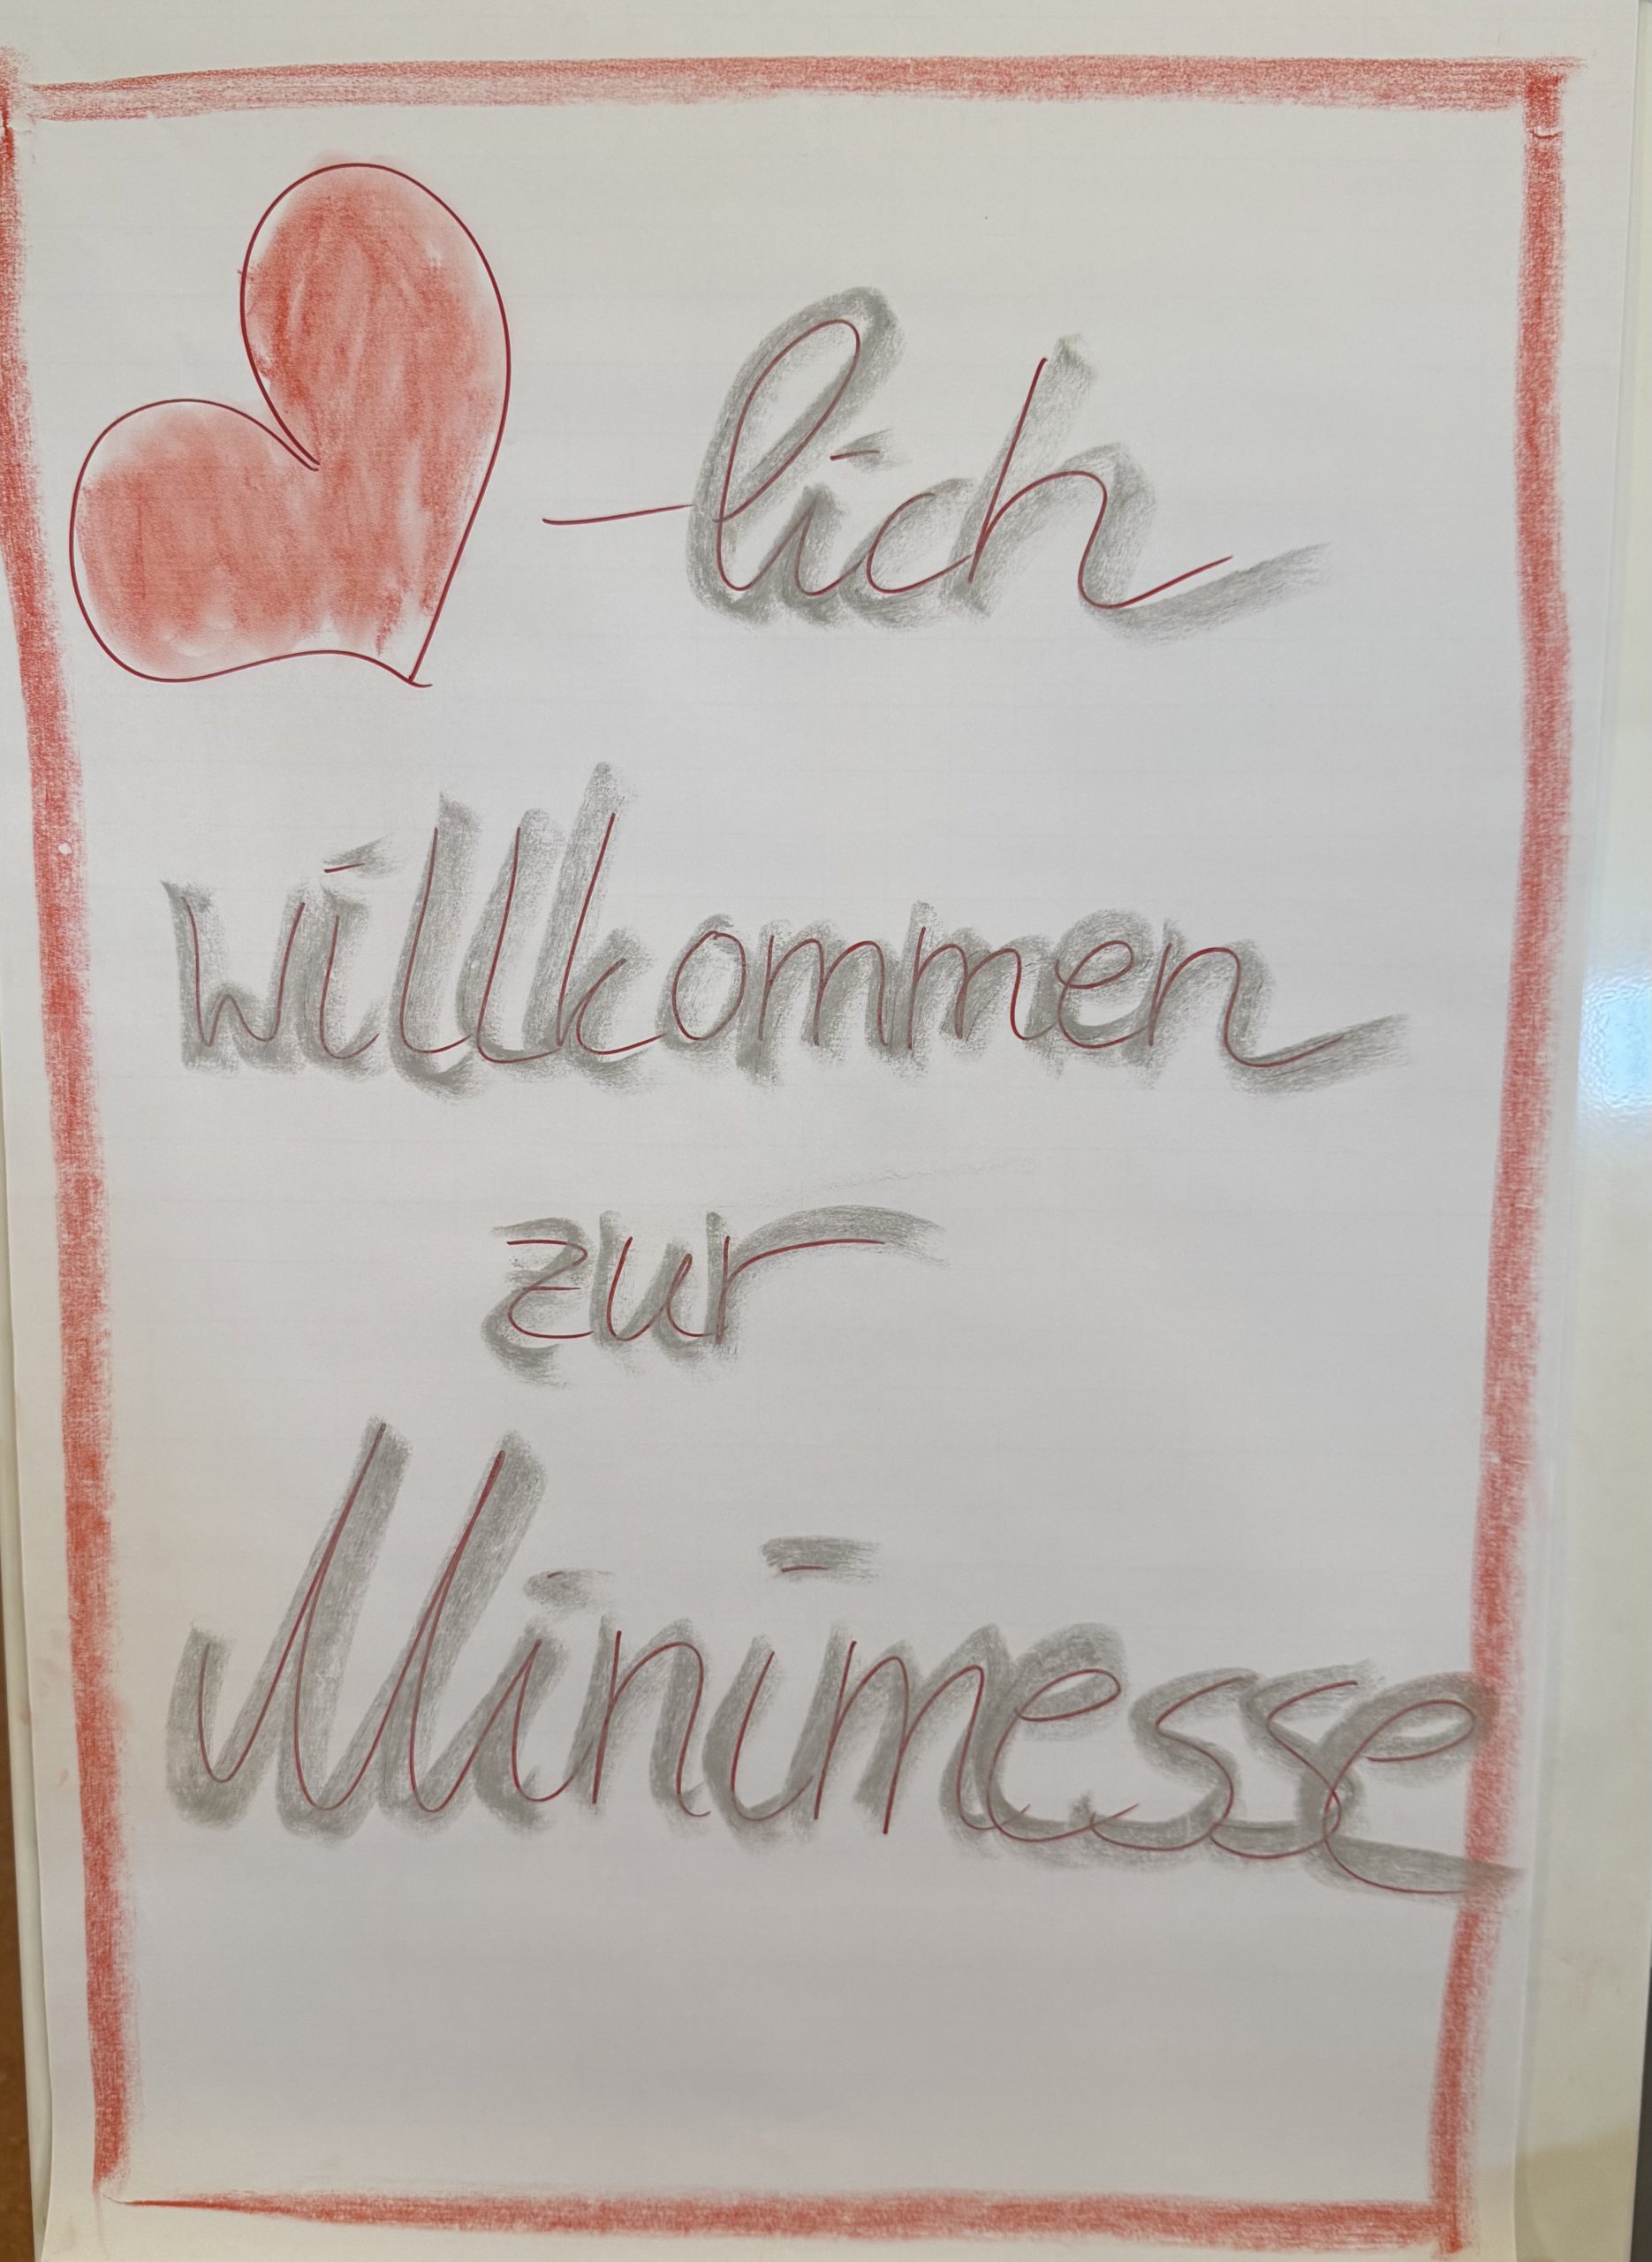 -lich
willkommen
zur
Minimesse